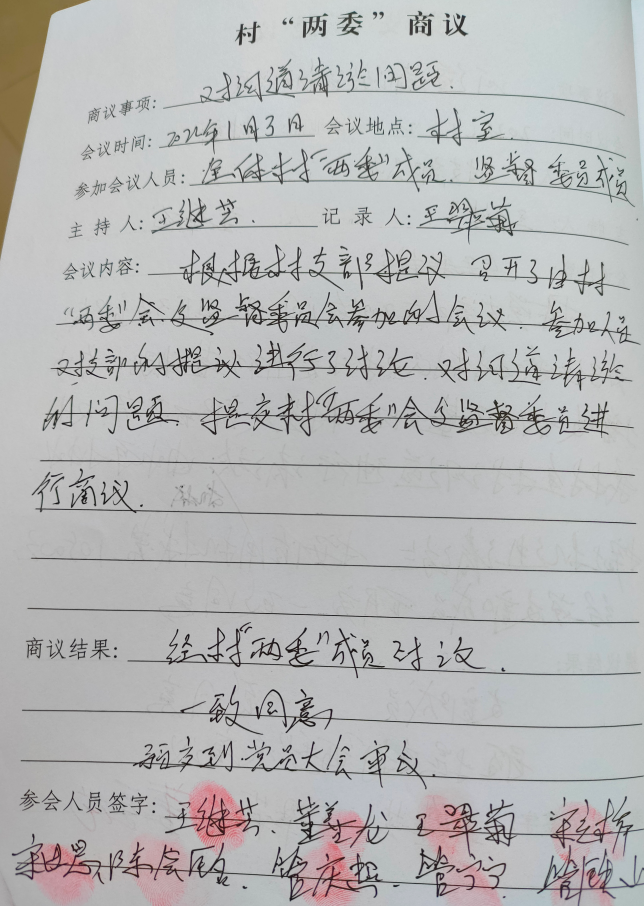 村“两委”商议
商议事项：对河道清淤问题.
会议时间：2022年1月3日 会议地点：村室
参加会议人员：全体村“两委”成员.监督委员成员
主持人：王继芸. 记录人：王翠菊
会议内容：根据村支部提议 召开了由村
“两委”会及监督委员会参加的会议.参加人员
对支部的提议进行了讨论.对河道清淤
的问题.提交村“两委”会及监督委员进
行商议.
商议结果：经村“两委”成员讨议.
一致同意
提交到党员大会审议.
参会人员签字：王继芸.董 龙 王翠菊
陈会 .管庆 .管宁宁.管